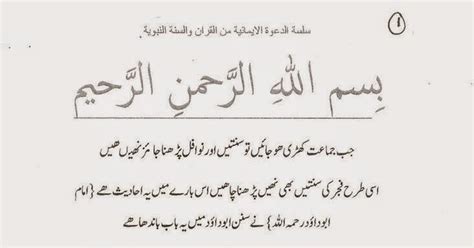 ۱
سلسة الدعوة الايمانية من القرآن والسنة النبوية
بِسمِ اللهِ الرَّحمنِ الرَّحيم
جب جماعت کھڑی ھو جائیں تو سنتیں اور نوافل پڑھنا جائز نھیں ھیں
اسی طرح فجر کی سنتیں بھی نھیں پڑھنا چاھیں اس بارے میں یہ احادیث ھے {امام
ابو داؤد رحمہ اللہ} نے سنن ابو داؤد میں یہ باب باندھا ھے